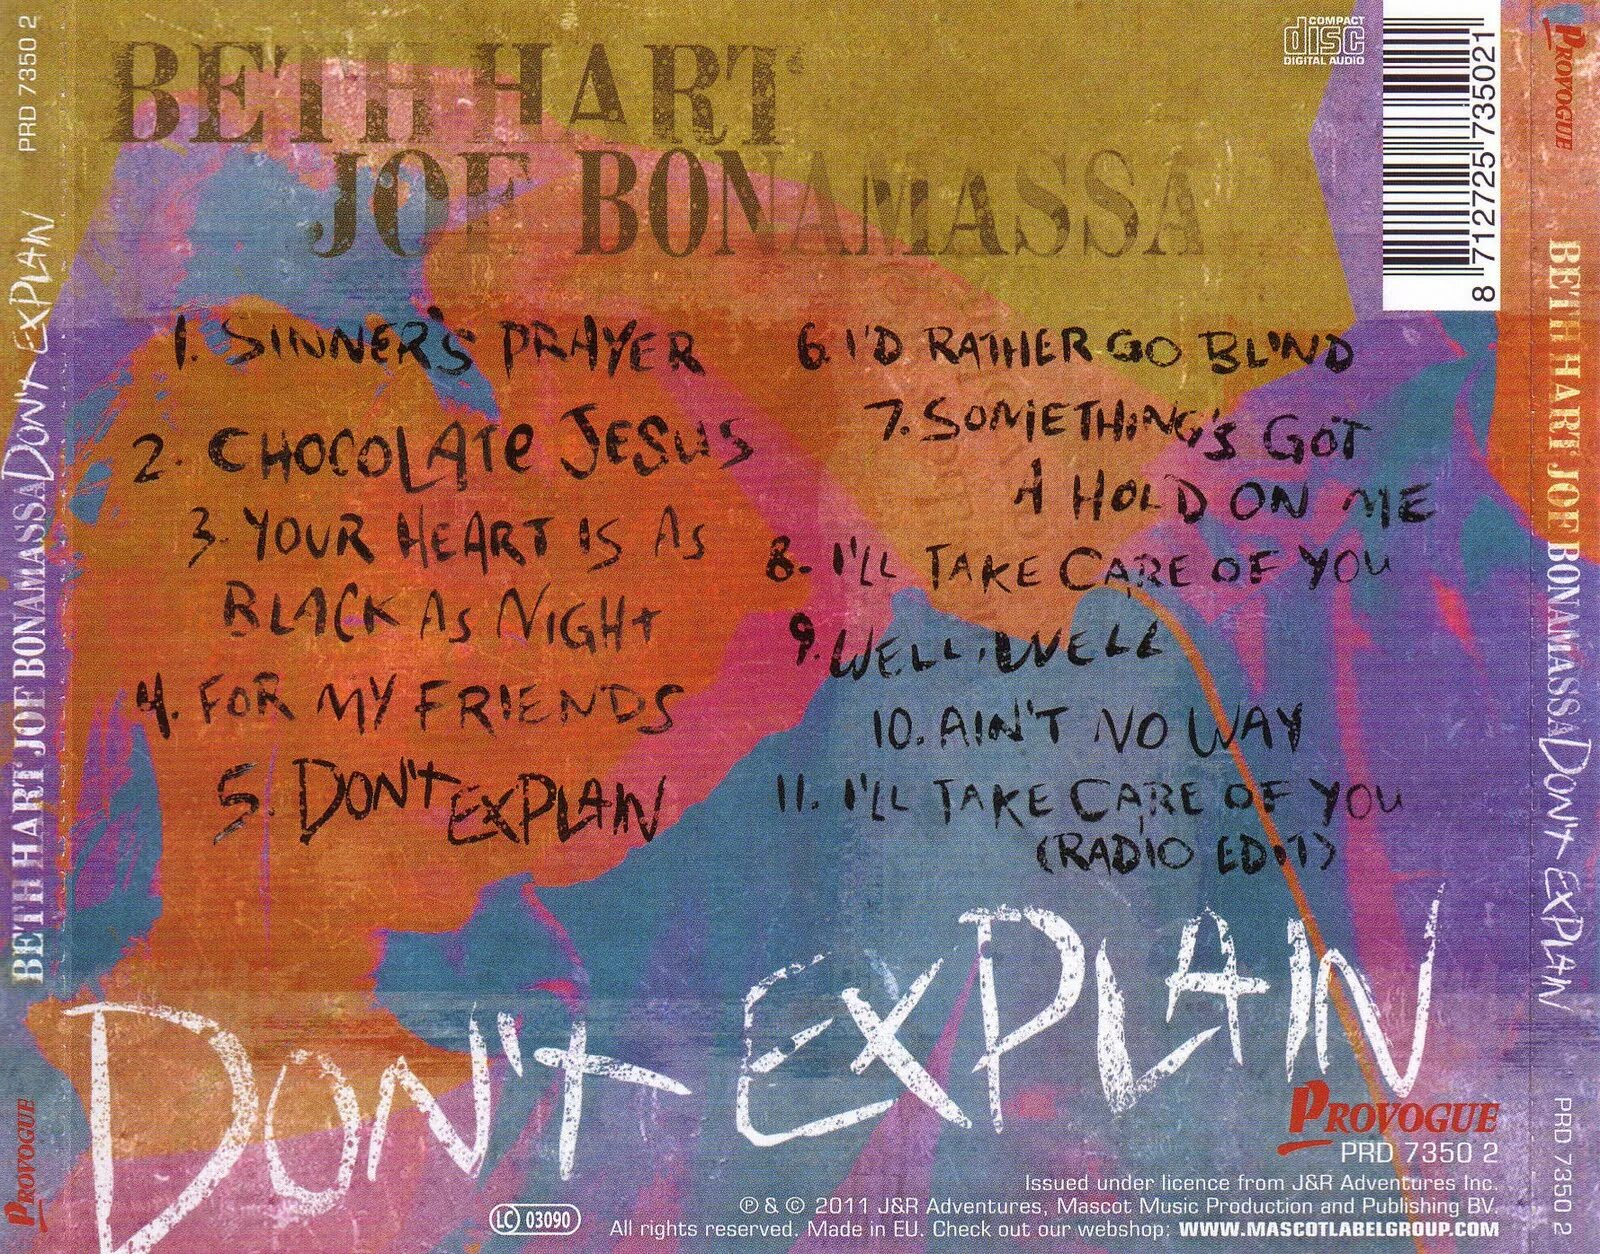 PRD 7350 2
BETH HART JOE BONAMASSA DON'T EXPLAIN
PROVOGUE
BETH HART
JOE BONAMASSA
COMPACT
disc
DIGITAL AUDIO
8 712725 735021
1. SINNER'S PRAYER
2. CHOCOLATE JESUS
3. YOUR HEART IS AS
BLACK AS NIGHT
4. FOR MY FRIENDS
5. DON'T EXPLAIN
6. I'D RATHER GO BLIND
7. SOMETHING'S GOT
A HOLD ON ME
8. I'LL TAKE CARE OF YOU
9. WELL, WELL
10. AIN'T NO WAY
11. I'LL TAKE CARE OF YOU
(RADIO EDIT)
DON'T EXPLAIN
PROVOGUE
PRD 7350 2
Issued under licence from J&R Adventures Inc.
LC 03090
℗ & © 2011 J&R Adventures, Mascot Music Production and Publishing BV.
All rights reserved. Made in EU. Check out our webshop: WWW.MASCOTLABELGROUP.COM
PROVOGUE
BETH HART JOE BONAMASSA DON'T EXPLAIN
PRD 7350 2